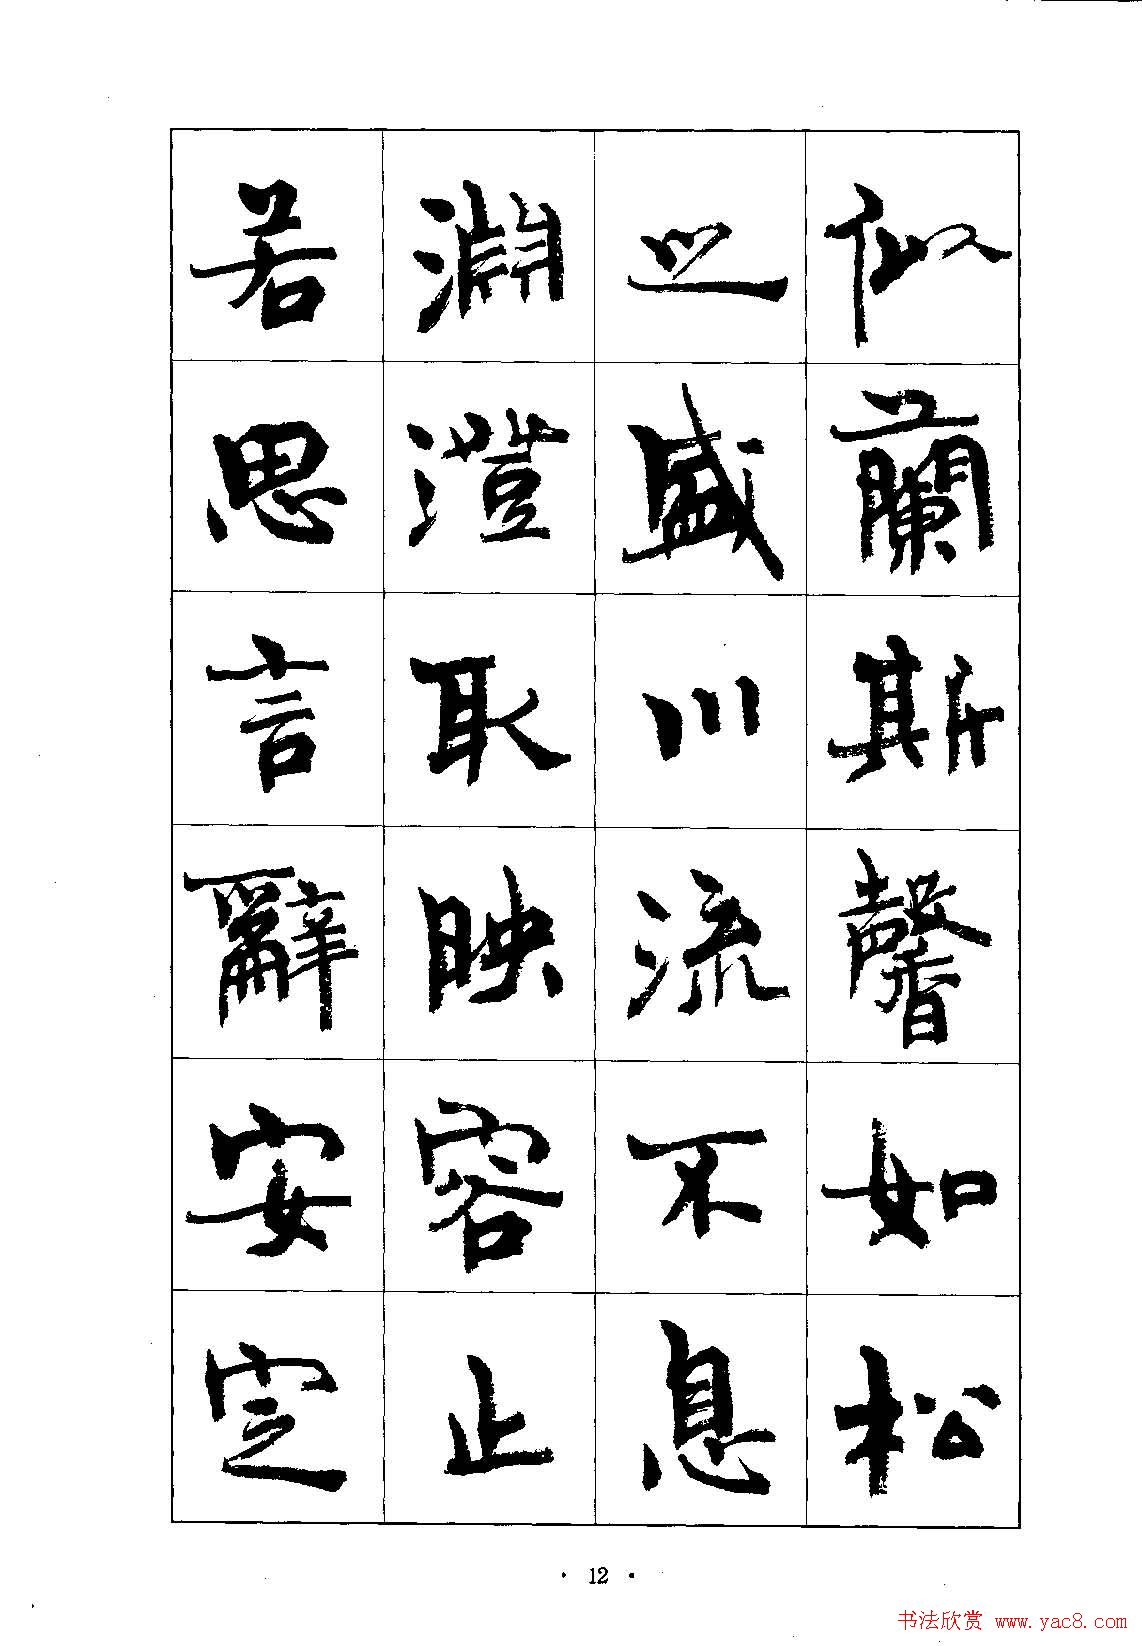 似蘭斯馨如松
之盛川流不息
淵澄取映容止
若思言辭安定
· 12 ·
书法欣赏 www.yac8.com